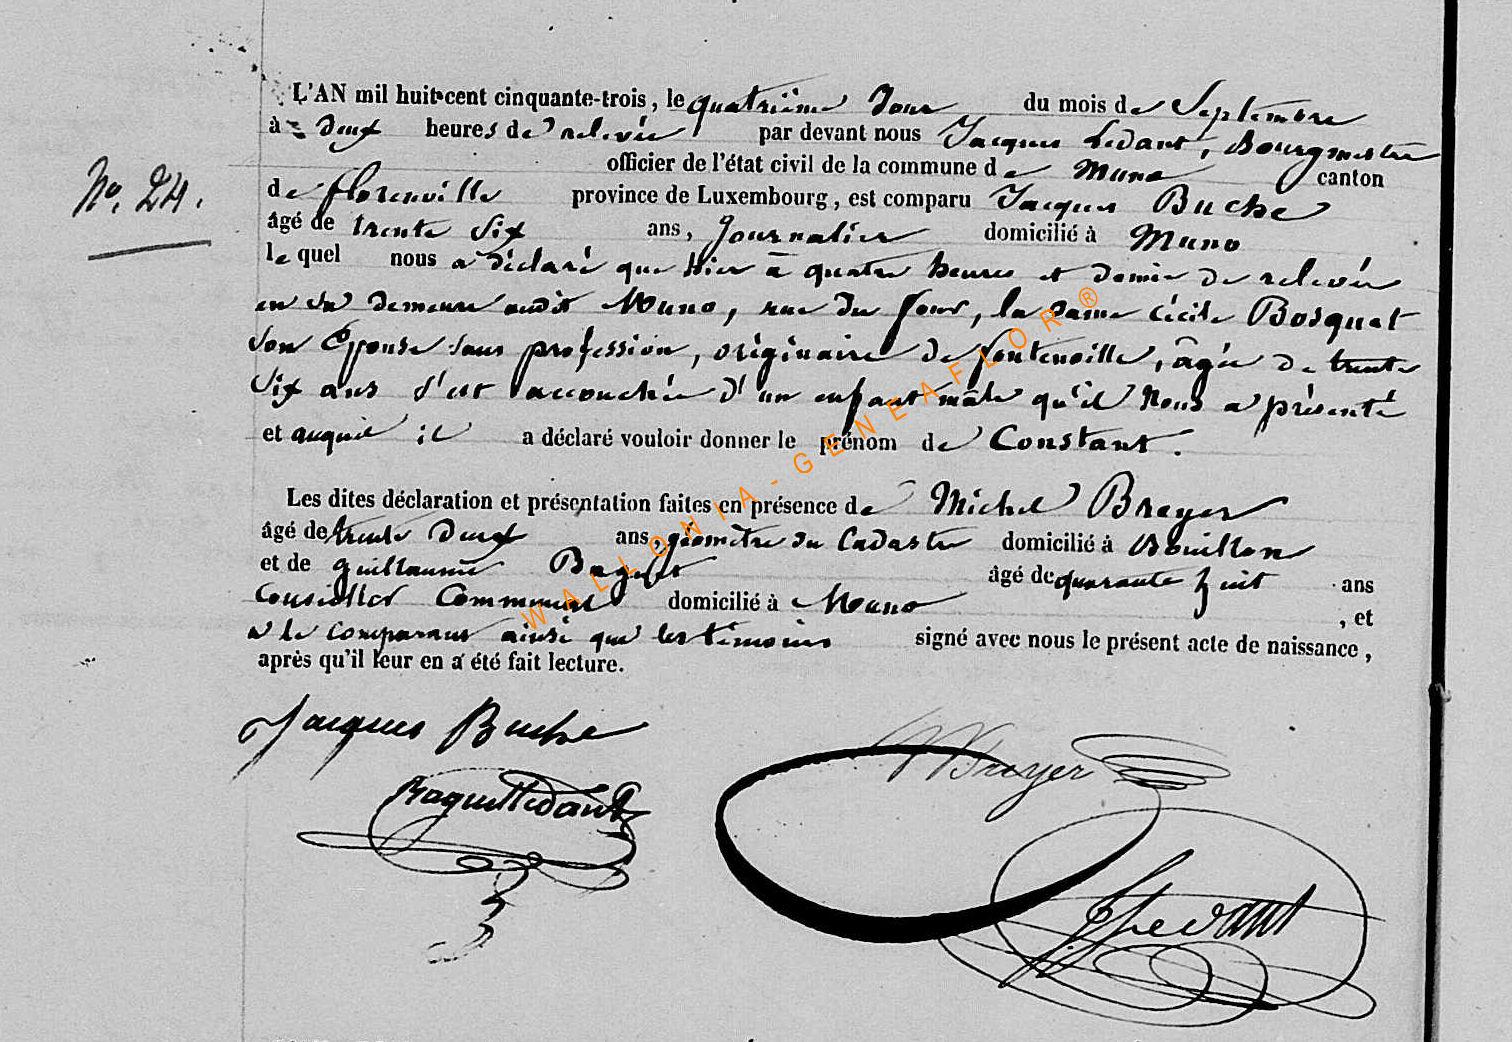 L'AN mil huit cent cinquante-trois, le quatrième Jour du mois de Septembre
à deux heures de relevée par devant nous Jacques Ledant, Bourgmestre
officier de l'état civil de la commune de Muno canton
No. 24.
de florenville province de Luxembourg, est comparu Jacques Buche
âgé de trente Six ans, Journalier domicilié à Muno
lequel nous a déclaré que hier à quatre heures et demie de relevée
en sa demeure audit Muno, rue du four, la dame Cécile Bosquet
Son Epouse sans profession, originaire de fontenoille, âgée de trente
Six ans s'est accouchée d'un enfant mâle qu'il Nous a présenté
et auquel il a déclaré vouloir donner le prénom de Constant.
Les dites déclaration et présentation faites en présence de Michel Breyer
âgé de trente Deux ans, géomètre du Cadastre domicilié à Bouillon
et de guillaume âgé de quarante huit ans
Conseiller Communal domicilié à Muno , et
a le comparant ainsi que les témoins signé avec nous le présent acte de naissance,
après qu'il leur en a été fait lecture.
Jacques Buche
Breyer
Ledant
WALLONIA-GENEAFLOR ®